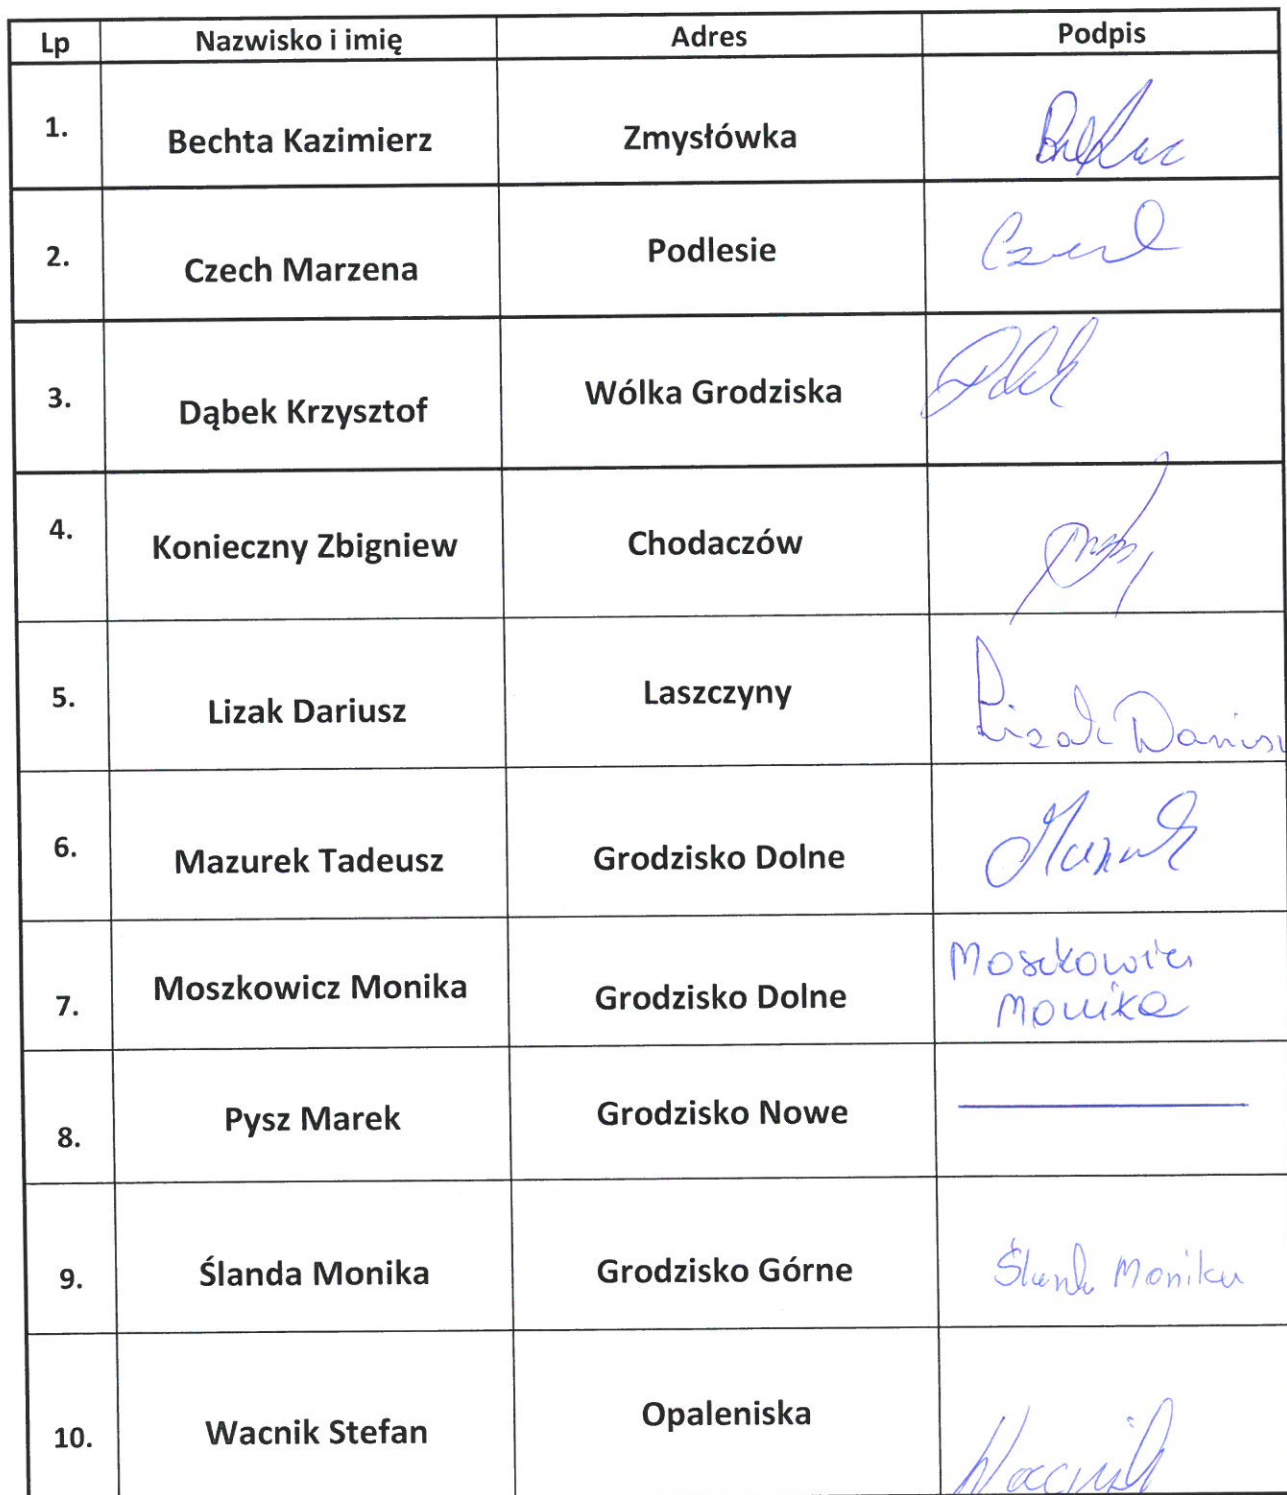 Lp Nazwisko i imię Adres Podpis
1. Bechta Kazimierz Zmysłówka
2. Czech Marzena Podlesie Czech
3. Dąbek Krzysztof Wólka Grodziska
4. Konieczny Zbigniew Chodaczów
5. Lizak Dariusz Laszczyny Lizak Darius
6. Mazurek Tadeusz Grodzisko Dolne Mazurek
7. Moszkowicz Monika Grodzisko Dolne Moszkowicz
Monika
8. Pysz Marek Grodzisko Nowe
9. Ślanda Monika Grodzisko Górne Ślanda Monika
10. Wacnik Stefan Opaleniska Wacnik